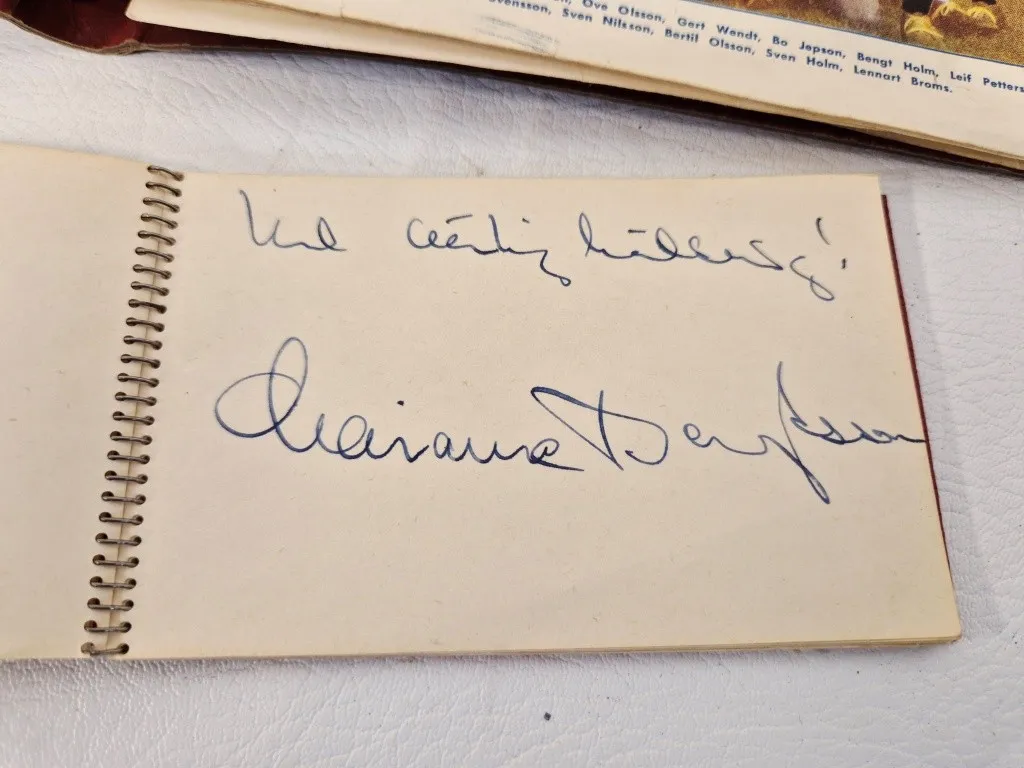 Ove Olsson, Gert Wendt, Bo Jepson, Bengt Holm, Leif Petters
Svensson, Sven Nilsson, Bertil Olsson, Sven Holm, Lennart Broms.
Med hälsning!
Marianne Bengtsson